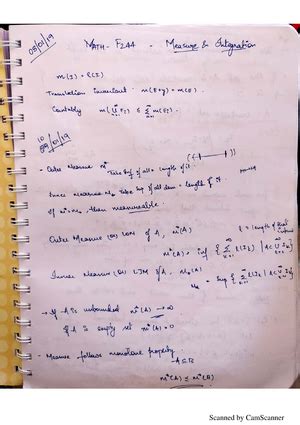 08/01/19
MATH-F244 - Measure & Integration
m(I) = l(I)
Translation invariant: m(E+y) = m(E).
Countably m(⋃ Eᵢ) ≤ Σ m(Eᵢ).
10
09/01/19
- Outer Measure m* Take Inf of all length of it.
Inner measure m* Take Sup of all = length of it.
if m* = m*, then measurable.
Outer Measure (or) LOM of A, m*(A)
l = length of
m*(A) = inf { Σ l(Iₖ) | A ⊂ ⋃ Iₖ }
Inner Measure (or) LIM of A, m*(A)
m* = Sup { Σ l(Iₖ) | A ⊂ ⋃ Iₖ }
→ If A is unbounded m*(A) → ∞
If A is empty set m*(A) = 0
- Measure follows monotone property
A ⊆ B
m*(A) ≤ m*(B)
Scanned by CamScanner